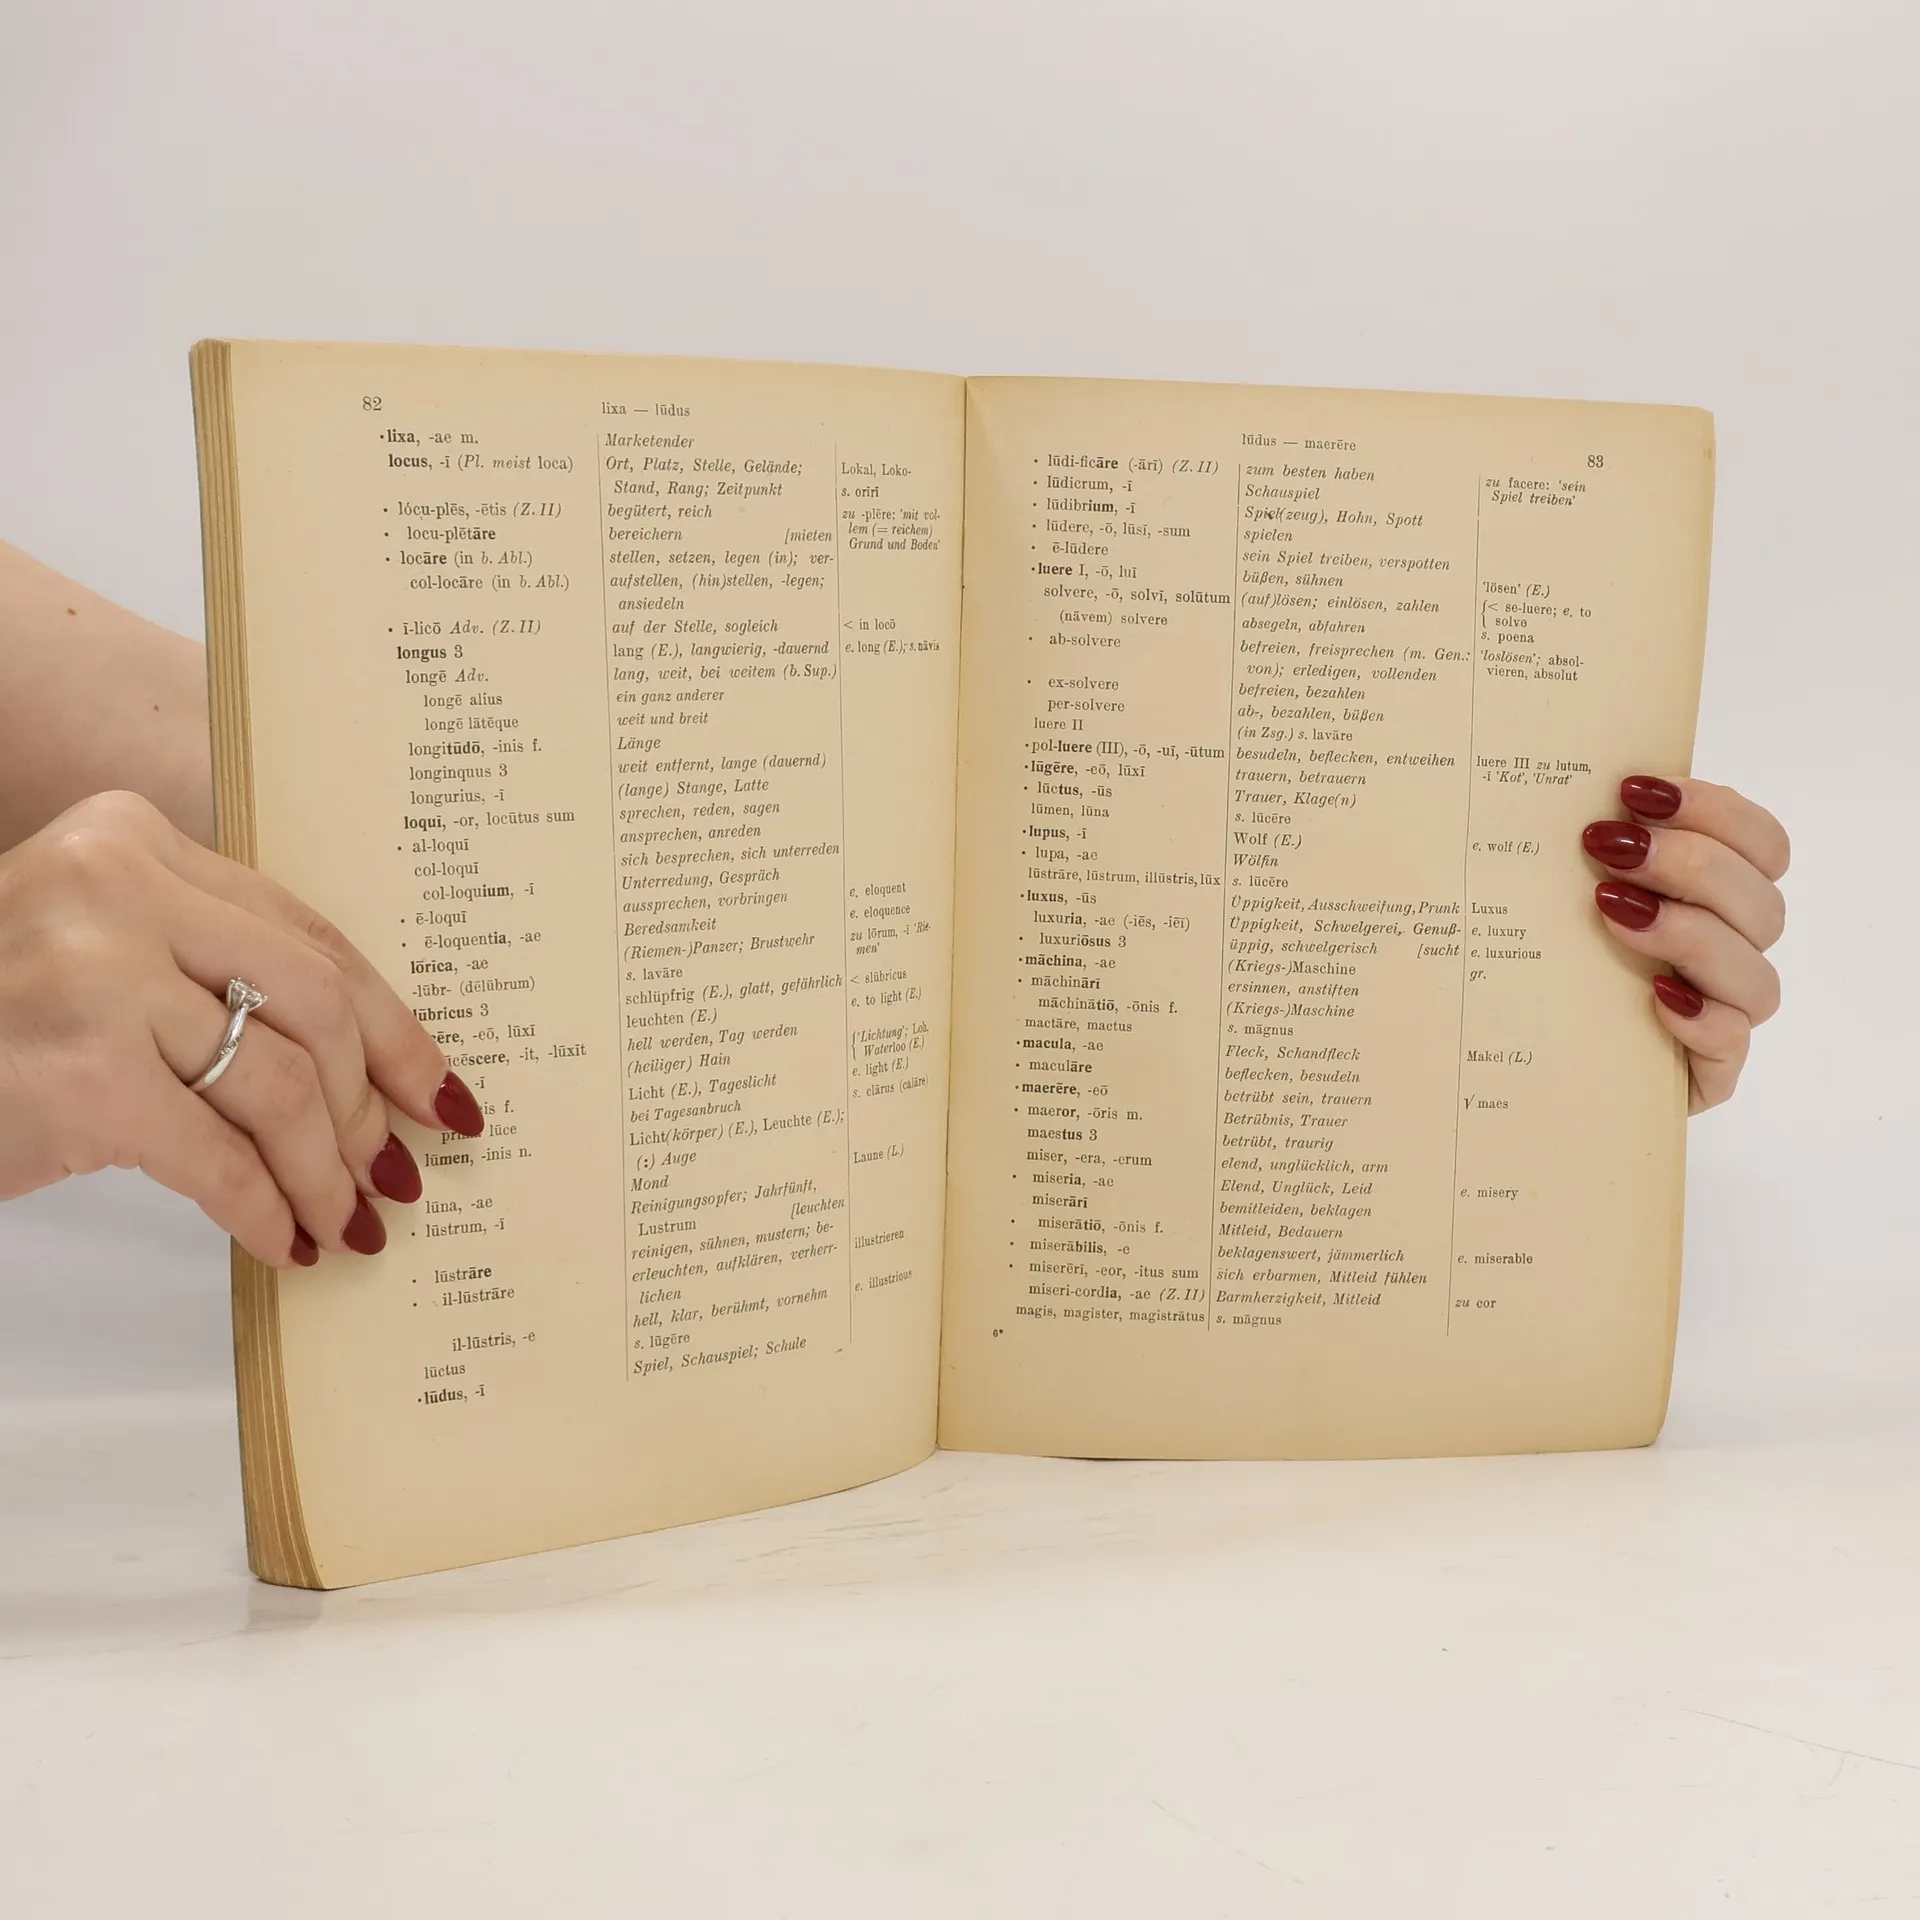 82 lixa — lūdus
•lixa, -ae m. Marketender
locus, -ī (Pl. meist loca) Ort, Platz, Stelle, Gelände; Lokal, Loko-
Stand, Rang; Zeitpunkt s. orīrī
• locu-plēs, -ētis (Z. II) begütert, reich zu -plēre: 'mit vol-
• locu-plētāre bereichern [mieten lem (= reichem)
Grund und Boden'
• locāre (in b. Abl.) stellen, setzen, legen (in); ver-
col-locāre (in b. Abl.) aufstellen, (hin)stellen, -legen;
ansiedeln
• ī-licō Adv. (Z. II) auf der Stelle, sogleich < in locō
longus 3 lang (E.), langwierig, -dauernd e. long (E.); s. nāvis
longē Adv. lang, weit, bei weitem (b. Sup.)
longē alius ein ganz anderer
longē lātēque weit und breit
longitūdō, -inis f. Länge
longinquus 3 weit entfernt, lange (dauernd)
longurius, -ī (lange) Stange, Latte
loquī, -or, locūtus sum sprechen, reden, sagen
• al-loquī ansprechen, anreden
col-loquī sich besprechen, sich unterreden
col-loquium, -ī Unterredung, Gespräch
• ē-loquī aussprechen, vorbringen e. eloquent
• ē-loquentia, -ae Beredsamkeit e. eloquence
lōrīca, -ae (Riemen-)Panzer; Brustwehr zu lōrum, -ī 'Rie-
men'
-lūbr- (dēlūbrum) s. lavāre
lūbricus 3 schlüpfrig (E.), glatt, gefährlich < slūbricus
cēre, -eō, lūxī leuchten (E.) e. to light (E.)
ūcēscere, -it, -lūxit hell werden, Tag werden
-ī (heiliger) Hain {'Lichtung'; Loh,
Waterloo (E.)
is f. Licht (E.), Tageslicht e. light (E.)
prīmā lūce bei Tagesanbruch s. clārus (calāre)
lūmen, -inis n. Licht(körper) (E.), Leuchte (E.);
(:) Auge
lūna, -ae Mond Laune (L.)
• lūstrum, -ī Reinigungsopfer; Jahrfünft,
Lustrum [leuchten
• lūstrāre reinigen, sühnen, mustern; be-
• il-lūstrāre erleuchten, aufklären, verherr- illustrieren
lichen
il-lūstris, -e hell, klar, berühmt, vornehm e. illustrious
lūctus s. lūgēre
•lūdus, -ī Spiel, Schauspiel; Schule
lūdus — maerēre 83
• lūdi-ficāre (-ārī) (Z. II) zum besten haben zu facere: 'sein
Spiel treiben'
• lūdicrum, -ī Schauspiel
• lūdibrium, -ī Spiel(zeug), Hohn, Spott
• lūdere, -ō, lūsī, -sum spielen
• ē-lūdere sein Spiel treiben, verspotten
•luere I, -ō, luī büßen, sühnen 'lösen' (E.)
solvere, -ō, solvī, solūtum (auf)lösen; einlösen, zahlen {< se-luere; e. to
solve
(nāvem) solvere absegeln, abfahren s. poena
• ab-solvere befreien, freisprechen (m. Gen.: 'loslösen'; absol-
von); erledigen, vollenden vieren, absolut
• ex-solvere befreien, bezahlen
per-solvere ab-, bezahlen, büßen
luere II (in Zsg.) s. lavāre
•pol-luere (III), -ō, -uī, -ūtum besudeln, beflecken, entweihen luere III zu lutum,
-ī 'Kot', 'Unrat'
•lūgēre, -eō, lūxī trauern, betrauern
• lūctus, -ūs Trauer, Klage(n)
lūmen, lūna s. lūcēre
•lupus, -ī Wolf (E.) e. wolf (E.)
• lupa, -ae Wölfin
lūstrāre, lūstrum, illūstris, lūx s. lūcēre
•luxus, -ūs Üppigkeit, Ausschweifung, Prunk Luxus
luxuria, -ae (-iēs, -iēī) Üppigkeit, Schwelgerei, Genuß- e. luxury
• luxuriōsus 3 üppig, schwelgerisch [sucht e. luxurious
•māchina, -ae (Kriegs-)Maschine gr.
• māchinārī ersinnen, anstiften
māchinātiō, -ōnis f. (Kriegs-)Maschine
mactāre, mactus s. māgnus
•macula, -ae Fleck, Schandfleck Makel (L.)
• maculāre beflecken, besudeln
•maerēre, -eō betrübt sein, trauern √ maes
• maeror, -ōris m. Betrübnis, Trauer
maestus 3 betrübt, traurig
miser, -era, -erum elend, unglücklich, arm
• miseria, -ae Elend, Unglück, Leid e. misery
miserārī bemitleiden, beklagen
• miserātiō, -ōnis f. Mitleid, Bedauern
• miserābilis, -e beklagenswert, jämmerlich e. miserable
• miserērī, -eor, -itus sum sich erbarmen, Mitleid fühlen
miseri-cordia, -ae (Z. II) Barmherzigkeit, Mitleid zu cor
magis, magister, magistrātus s. māgnus
6*